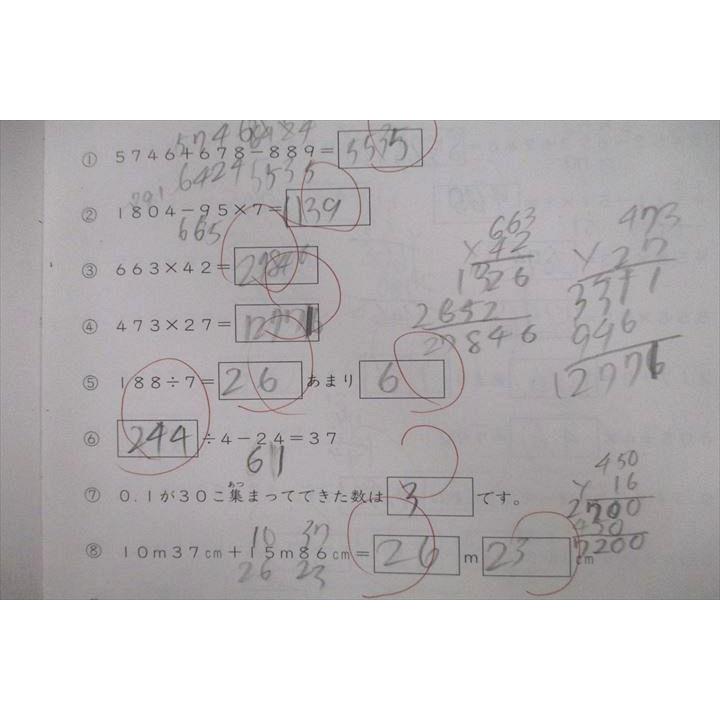 5746 4984
① 5746+678−889= 5535
6424 5535
② 1804−95×7= 1139
665
③ 663×42= 27846
④ 473×27= 12771
⑤ 188÷7= 26 あまり 6
⑥ 244 ÷4−24=37
61
あつ
⑦ 0.1が30こ集まってできた数は 3 です。
10 37
⑧ 10m37cm+15m86cm= 26 m 23 cm
26 23
663
×42
1326
2652
27846
473
×27
3311
946
450
×16
2700
450
7200